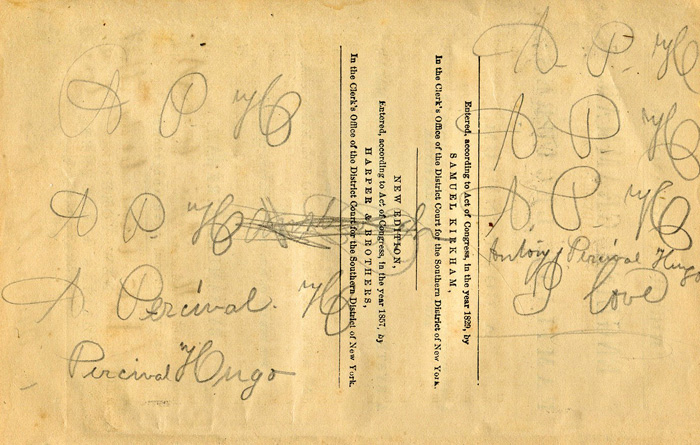 A. P. H
A. P. H
A. P. H
A. P. H
A. P. H
A. Percival. H
Percival Hugo
Antony Percival Hugo
I love
Entered, according to Act of Congress, in the year 1829, by
SAMUEL KIRKHAM,
In the Clerk's Office of the District Court for the Southern District of New York.
NEW EDITION,
Entered, according to Act of Congress, in the year 1857, by
HARPER & BROTHERS,
In the Clerk's Office of the District Court for the Southern District of New York.